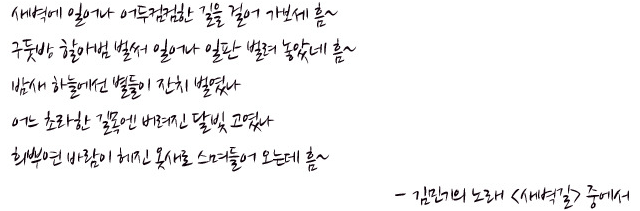 새벽에 일어나 어두컴컴한 길을 걸어 가보세 흠~
구둣방 할아범 벌써 일어나 일판 벌려 놓았네 흠~
밤새 하늘에선 별들이 잔치 벌였나
어느 초라한 길목엔 버려진 달빛 고였나
희뿌연 바람이 헤진 옷새로 스며들어 오는데 흠~
- 김민기의 노래 <새벽길> 중에서